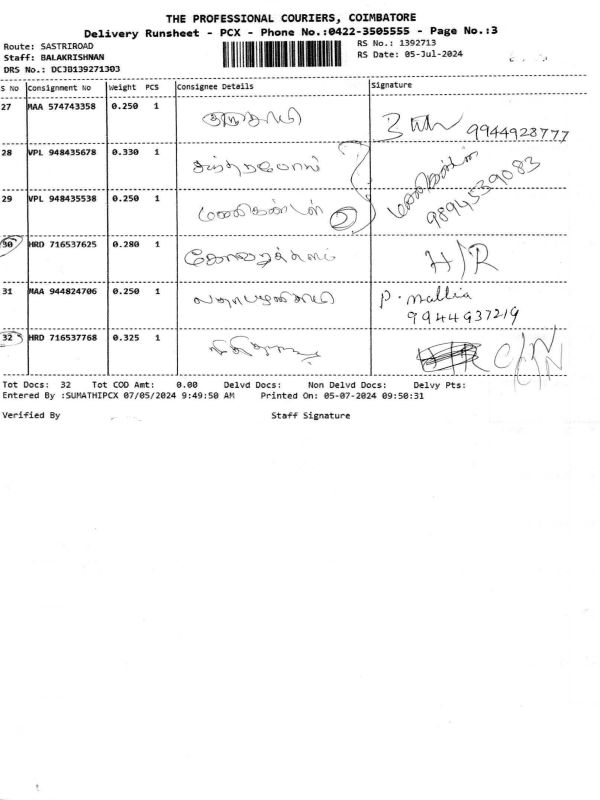 THE PROFESSIONAL COURIERS, COIMBATORE
Delivery Runsheet - PCX - Phone No.:0422-3505555 - Page No.:3
Route: SASTRIROAD
RS No.: 1392713
Staff: BALAKRISHNAN
RS Date: 05-Jul-2024
DRS No.: DCJB139271303
S No Consignment No Weight PCS Consignee Details Signature
27 MAA 574743358 0.250 1
9944928777
28 VPL 948435678 0.330 1
29 VPL 948435538 0.250 1 மணிகண்டன் 2 மணிகண்டன்
9894539083
30 HRD 716537625 0.280 1 H/R
31 MAA 944824706 0.250 1 P. mallia
9944937219
32 HRD 716537768 0.325 1 C/N
Tot Docs: 32 Tot COD Amt: 0.00 Delvd Docs: Non Delvd Docs: Delvy Pts:
Entered By :SUMATHIPCX 07/05/2024 9:49:50 AM Printed On: 05-07-2024 09:50:31
Verified By Staff Signature